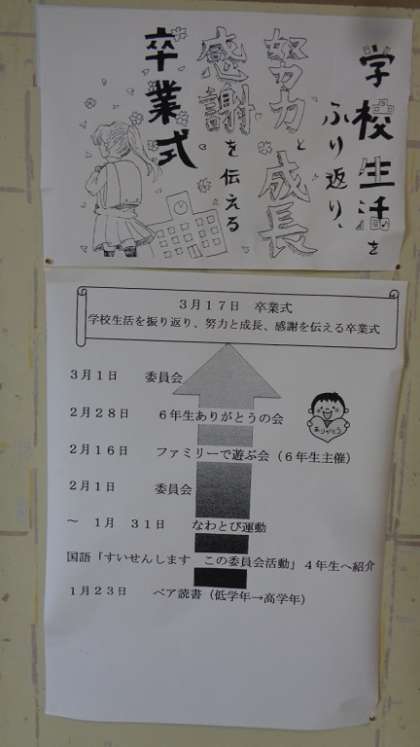 学校生活を
ふり返り、
努力と成長
感謝を伝える
卒業式
3月17日 卒業式
学校生活を振り返り、努力と成長、感謝を伝える卒業式
3月1日 委員会
2月28日 6年生ありがとうの会
ありがとう
2月16日 ファミリーで遊ぶ会（6年生主催）
2月1日 委員会
～ 1月 31日 なわとび運動
国語「すいせんします この委員会活動」4年生へ紹介
1月23日 ペア読書（低学年→高学年）